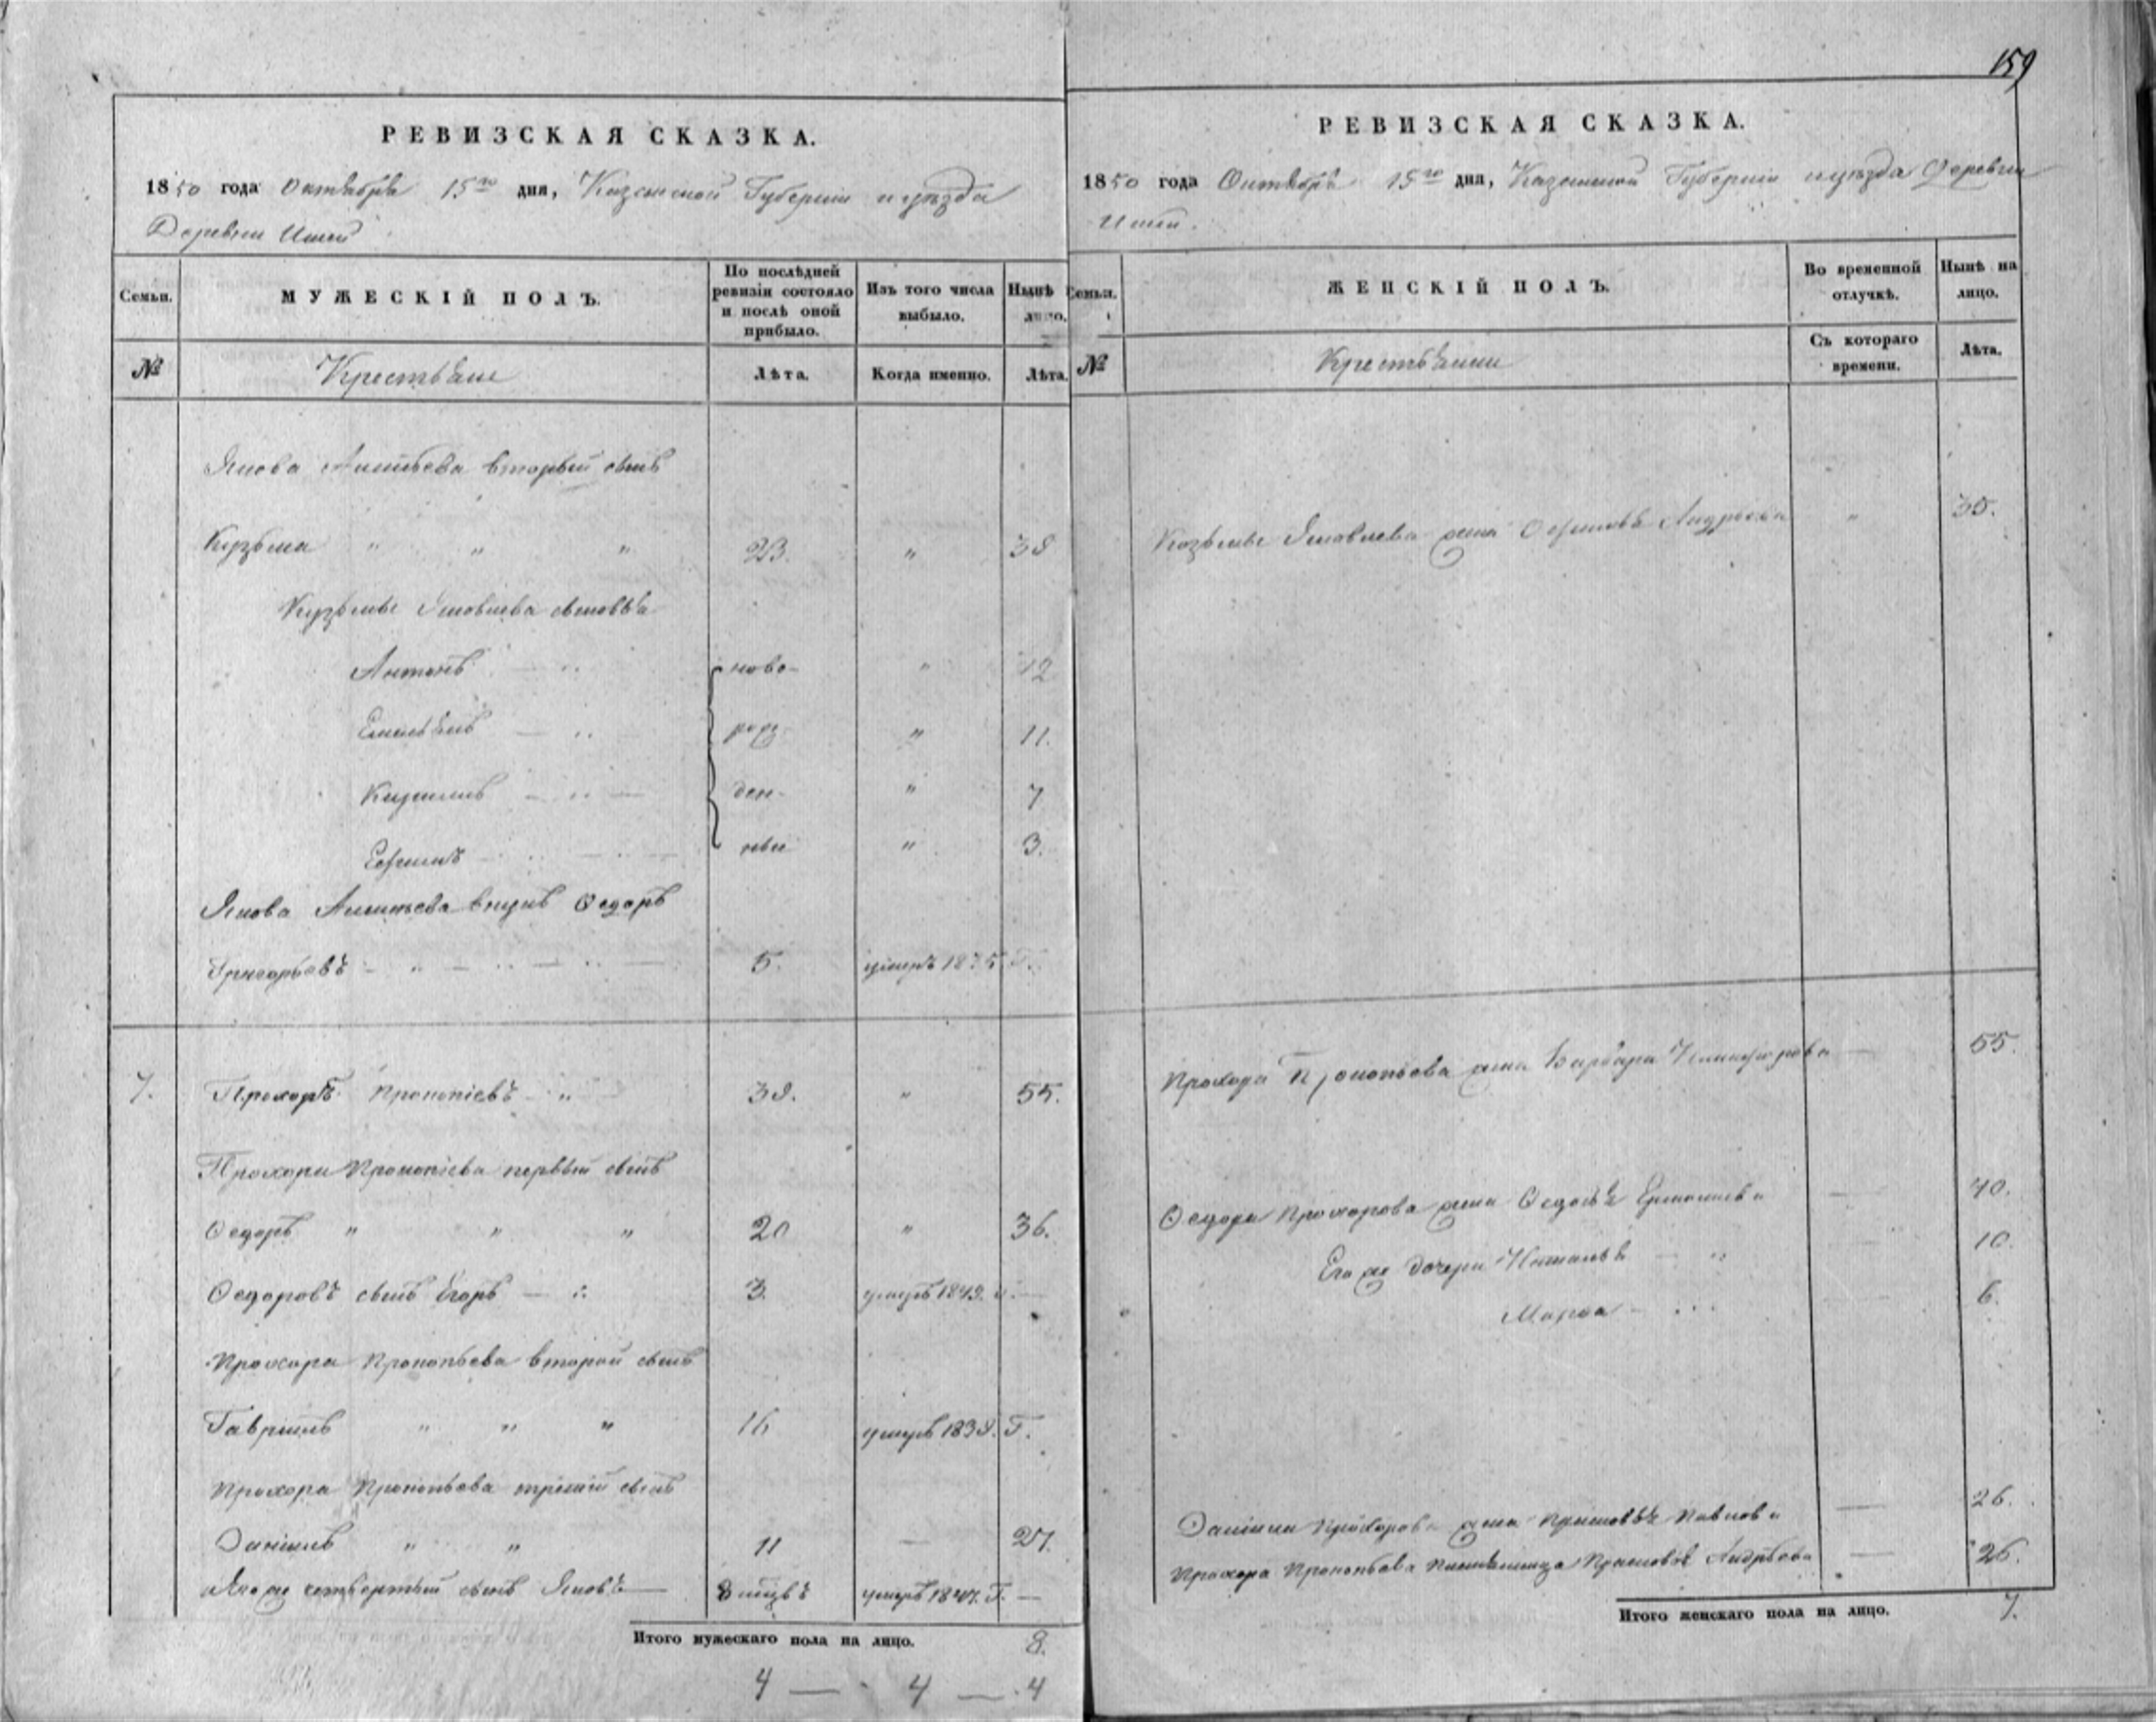 РЕВИЗСКАЯ СКАЗКА.
1850 года Октября 15го дня, Казанской Губернии и уѣзда
Деревни
Семьи.
МУЖЕСКІЙ ПОЛЪ.
По послѣдней ревизіи состояло и послѣ оной прибыло.
Изъ того числа выбыло.
Нынѣ лицо.
№
Крестьяне
Лѣта.
Когда именно.
Лѣта.
Якова второй сынъ
Кузьма " " " 23. " 38
Кузьмы Яковлева сыновья
Антонъ ново- " 12
Емельянъ рож- " 11.
ден- " 7
Ефимъ ные " 3.
Якова внукъ Ѳедоръ
Григорьевъ 5. умеръ
7. Прохоръ Прокопіевъ " 38. " 55.
Прохора Прокопіева первый сынъ
Ѳедоръ " " " 20 " 36.
Ѳедоровъ сынъ Егоръ 3. умеръ 1849.
Прохора Прокопьева второй сынъ
Гаврилъ " " " 16 умеръ 1838. Г.
Прохора Прокопьева третій сынъ
Данилъ " " 11 — 27.
Его же четвертый сынъ Яковъ 8 мцвъ умеръ 1847. Г. —
Итого мужескаго пола на лицо. 8.
4 — 4 — 4
159
РЕВИЗСКАЯ СКАЗКА.
1850 года Октября 15го дня, Казанской Губерніи и уѣзда Деревни
Семьи.
ЖЕНСКІЙ ПОЛЪ.
Во временной отлучкѣ.
Нынѣ на лицо.
№
Крестьянки
Съ котораго времени.
Лѣта.
Козьмы Яковлева жена Андреева " 35.
Прохора Прокопьева жена Варвара 55.
Ѳедора Прохорова жена Ѳедосья 40.
Его же дочери Наталья 10.
Марѳа 6.
Данилы Прохорова жена Прасковья Павлова — 26.
Прохора Прокопьева Прасковья Андреева — 26.
Итого женскаго пола на лицо. 7.